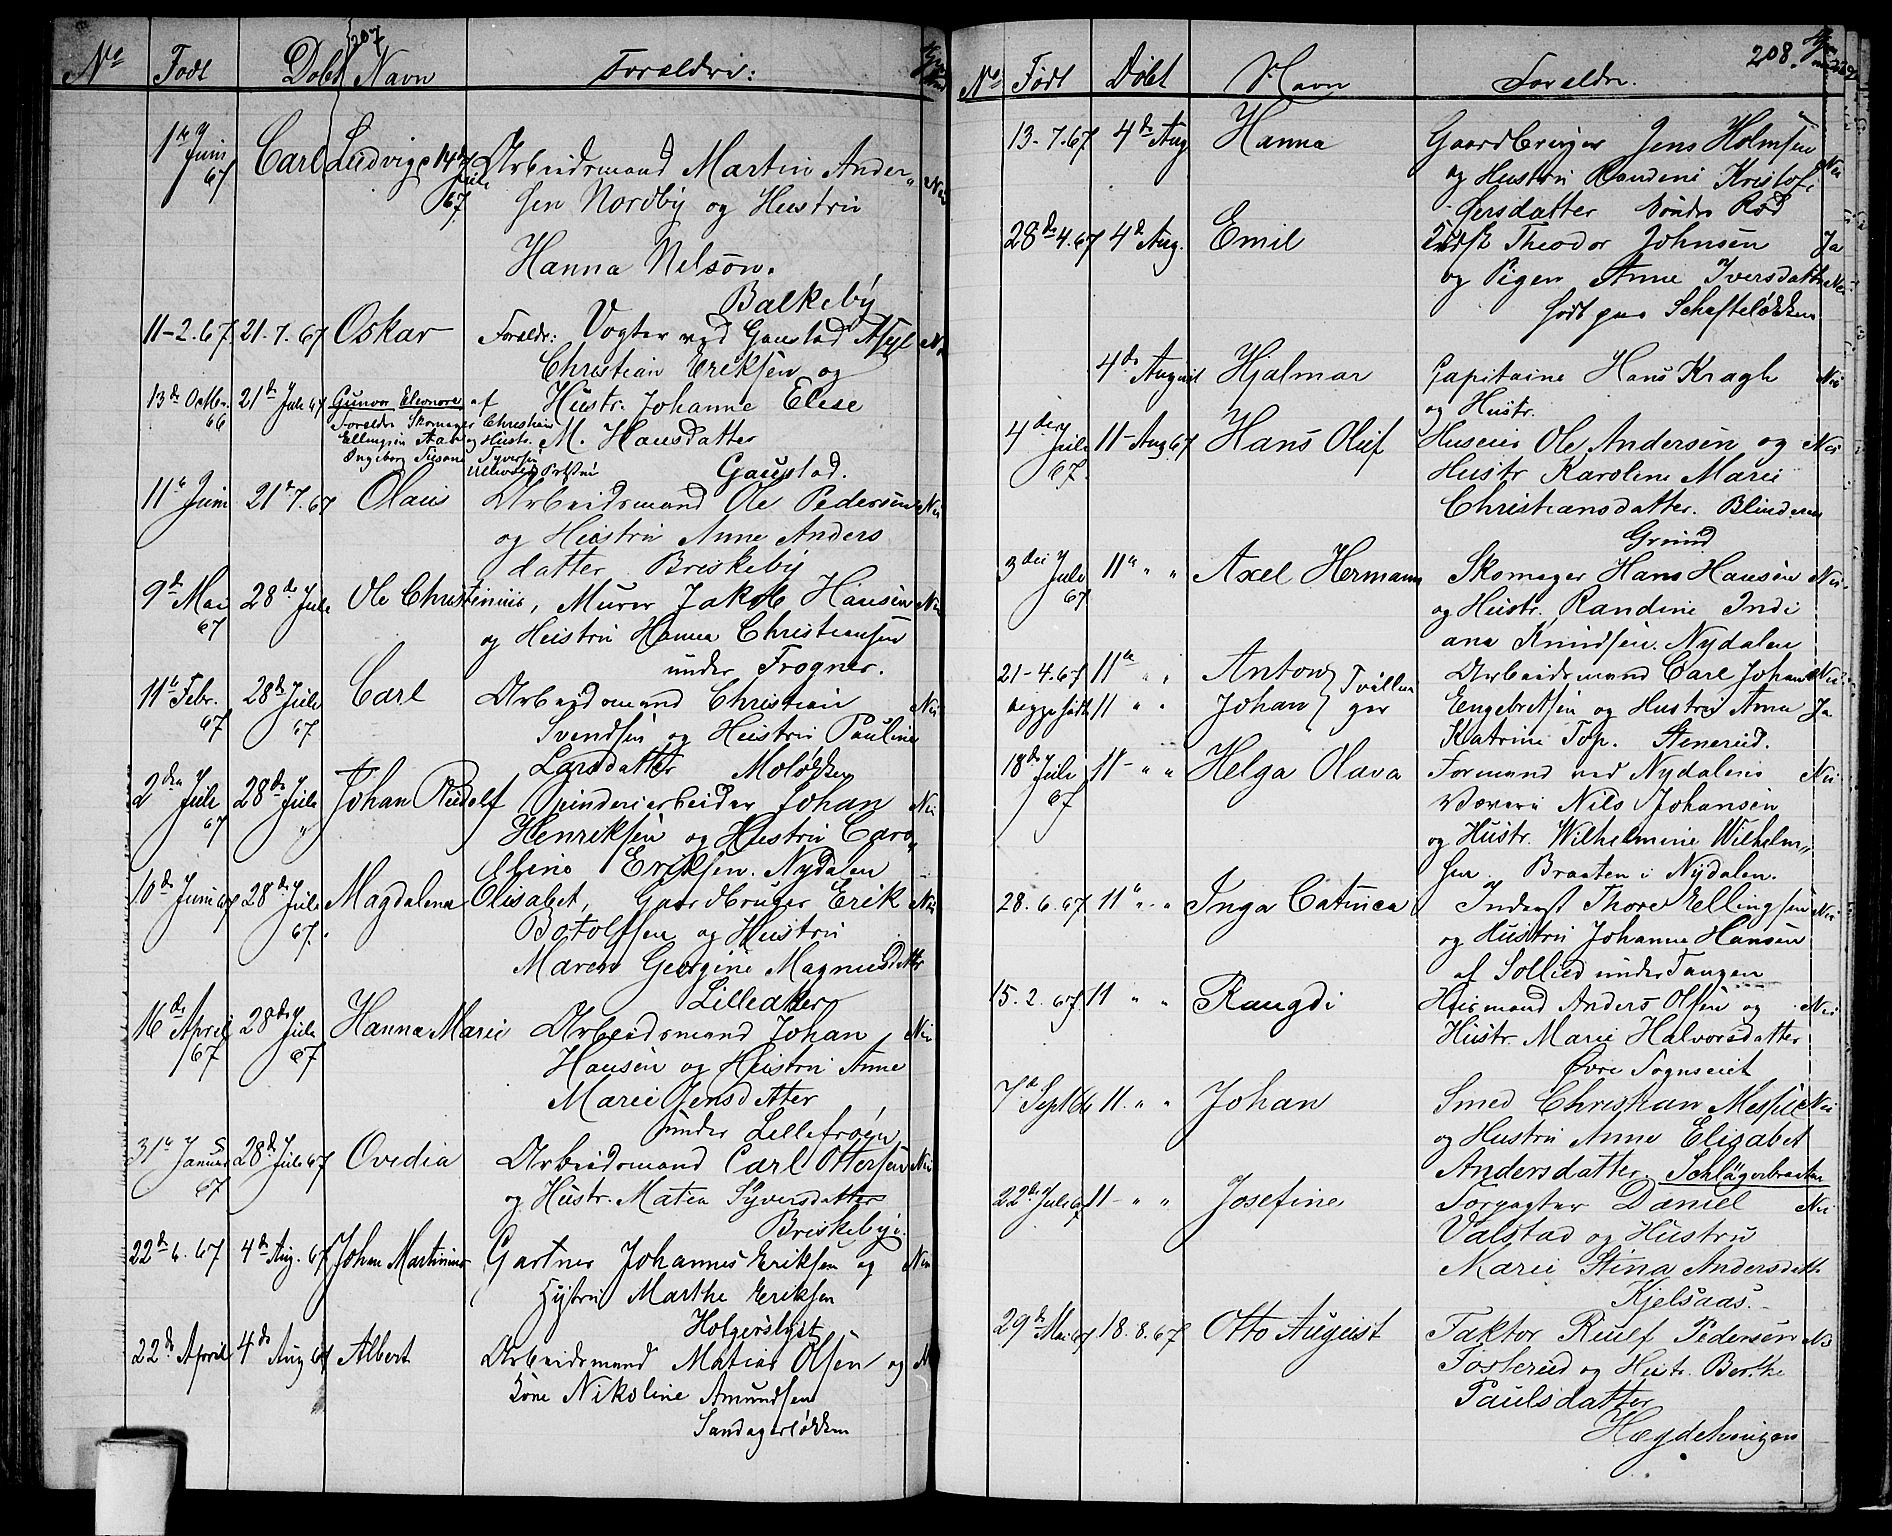 207
No Født Døbt Navn Forældre:
1ste Juni 67 Carl Ludvig 14de Juli 67 Arbeidsmand Martin Ander„ Nei
sen Nordby og Hustru
Hanna Nelson.
Balkeby
11-2.67 21.7.67 Oskar Forældr: Vogter ved Gaustad Asyl
Christian Eriksen og
Hustr. Johanne Elise
M. Hansdatter
Gaustad.
13de Octbr. 66 21de Juli 67 Gunvor Eleonore af
Forældre Skomager Christian
Ellingsen Aas og Hustr.
Ingeborg Susanne Syversen
11te Juni 21de 7.67 Olaus Arbeidsmand Ole Pedersen Nei
og Hustru Anne Anders
datter Briskeby
9de Mai 67 28de Juli Ole Christinius, Murer Jakob Hansen Nei
og Hustru Hanna Christiansen
under Frogner.
11te Febr. 67 28de Juli 67 Carl Arbeidsmand Christian Nei
Svendsen og Hustru Pauline
Larsdatter Moløkken
2den Juli 67 28de Juli „ Johan Rudolf Spinderiarbeider Johan Nei
Henriksen og Hustru Caro„
line Eriksen. Nydalen
10de Juni 67 28de Juli 67. Magdalena Elisabet, Gaardbruger Erik Nei
Botolfsen og Hustru
Maren Georgine Magnusdttr
Lilleaker
16de April 67 28de Juli 67 Hanna Marie Arbeidsmand Johan Nei
Hansen og Hustru Anne
Marie Jensdatter
under Lillefrøen
31te Januar 67 28de Juli 67 Ovedia Arbeidsmand Carl Ottersen Nei
og Hustr. Matea Syversdatter
Briskeby.
22de 6.67 4de Aug. 67 Johan Martinius Gartner Johannes Eriksen og Nei
Hustru Marthe Eriksen
Holgerslyst
22de April 4de Aug 67 Albert Arbeidsmand Matias Olsen og
Kone Nikoline Amundsen
Sandagerløkken
208.
No Født Døbt Navn Forældre.
13-7.67 4de Aug Hanna Gaardbruger Jens Holmsen Nei
og Hustru Randeni Kristof
fersdatter Søndre Rød
28de 4.67 4de Aug. Emil Theodor Johnsen Ja
og Pigen Anne Iversdatter Nei
født paa Schafteløkken
4de August Hjalmar Capitaine Hans Kragh Nei
og Hustr.
4de Juli 67. 11-Aug 67 Hans Oluf Huseier Ole Andersen og Nei
Hustr Karoline Marie
Christiansdatter. Blindern
Grund
3die Juli 67 11te „ „ Axel Hermann Skomager Hans Hansen Nei
og Hustr. Randine Indi
ana Knudsen. Nydalen
21-4.67 11te „ „ Anton } Tvillin Arbeidsmand Carl Johan Nei
begge født 11 „ „ Johan } ger Engebretsen og Hustru Anna Ja
Katrine Top. Stenerud.
18de Juli 67 11- „ „ Helga Olava Formand ved Nydalens Nei
Væveri Nils Johansen
og Hustr. Wilhelmine Wilhelm„
sen. Braaten i Nydalen.
28.6.67 11te „ „ Inga Catinca Inderst Thore Ellingsen Nei
og Hustru Johanne Hansen
af Sollied under Tangen
15.2.67 11 „ „ Rangdi Husmand Anders Olsen og Nei
Hustr. Marie Halvorsdatter
Øvre Sognseiet
7de Sept 66 11. „ „ Johan Smed Christian Messel Nei
og Hustru Anne Elisabet
Andersdatter Schlägerbraaten
22de Juli 67 11- „ „ Josefine Forpagter Daniel Nei
Valstad og Hustru
Marie Stina Andersdatt.
Kjelsaas.
29de Mai 67 18.8.67 Otto August Faktor Rulf Pedersen Nei
Fosterud og Hustr. Berthe
Paulsdatter
Hægdehaugen